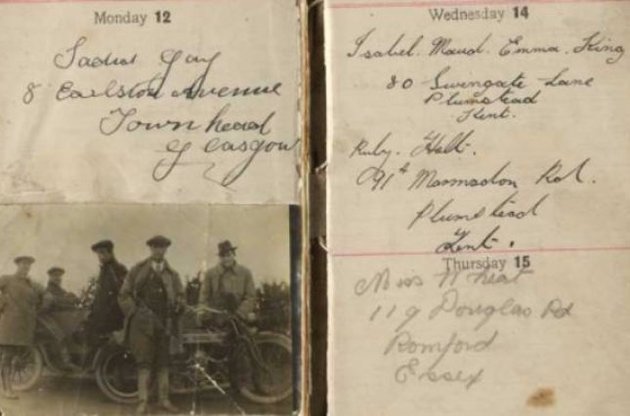 Monday 12
Sadie Gay
8 Earlston Avenue
Townhead
Glasgow
Wednesday 14
Isabel. Maud. Emma. King
80 Swingate Lane
Plumstead
Kent.
Ruby. Holt.
91A Marmadon Rd.
Plumstead
Kent.
Thursday 15
Miss Wheat
119 Douglas Rd
Romford
Essex